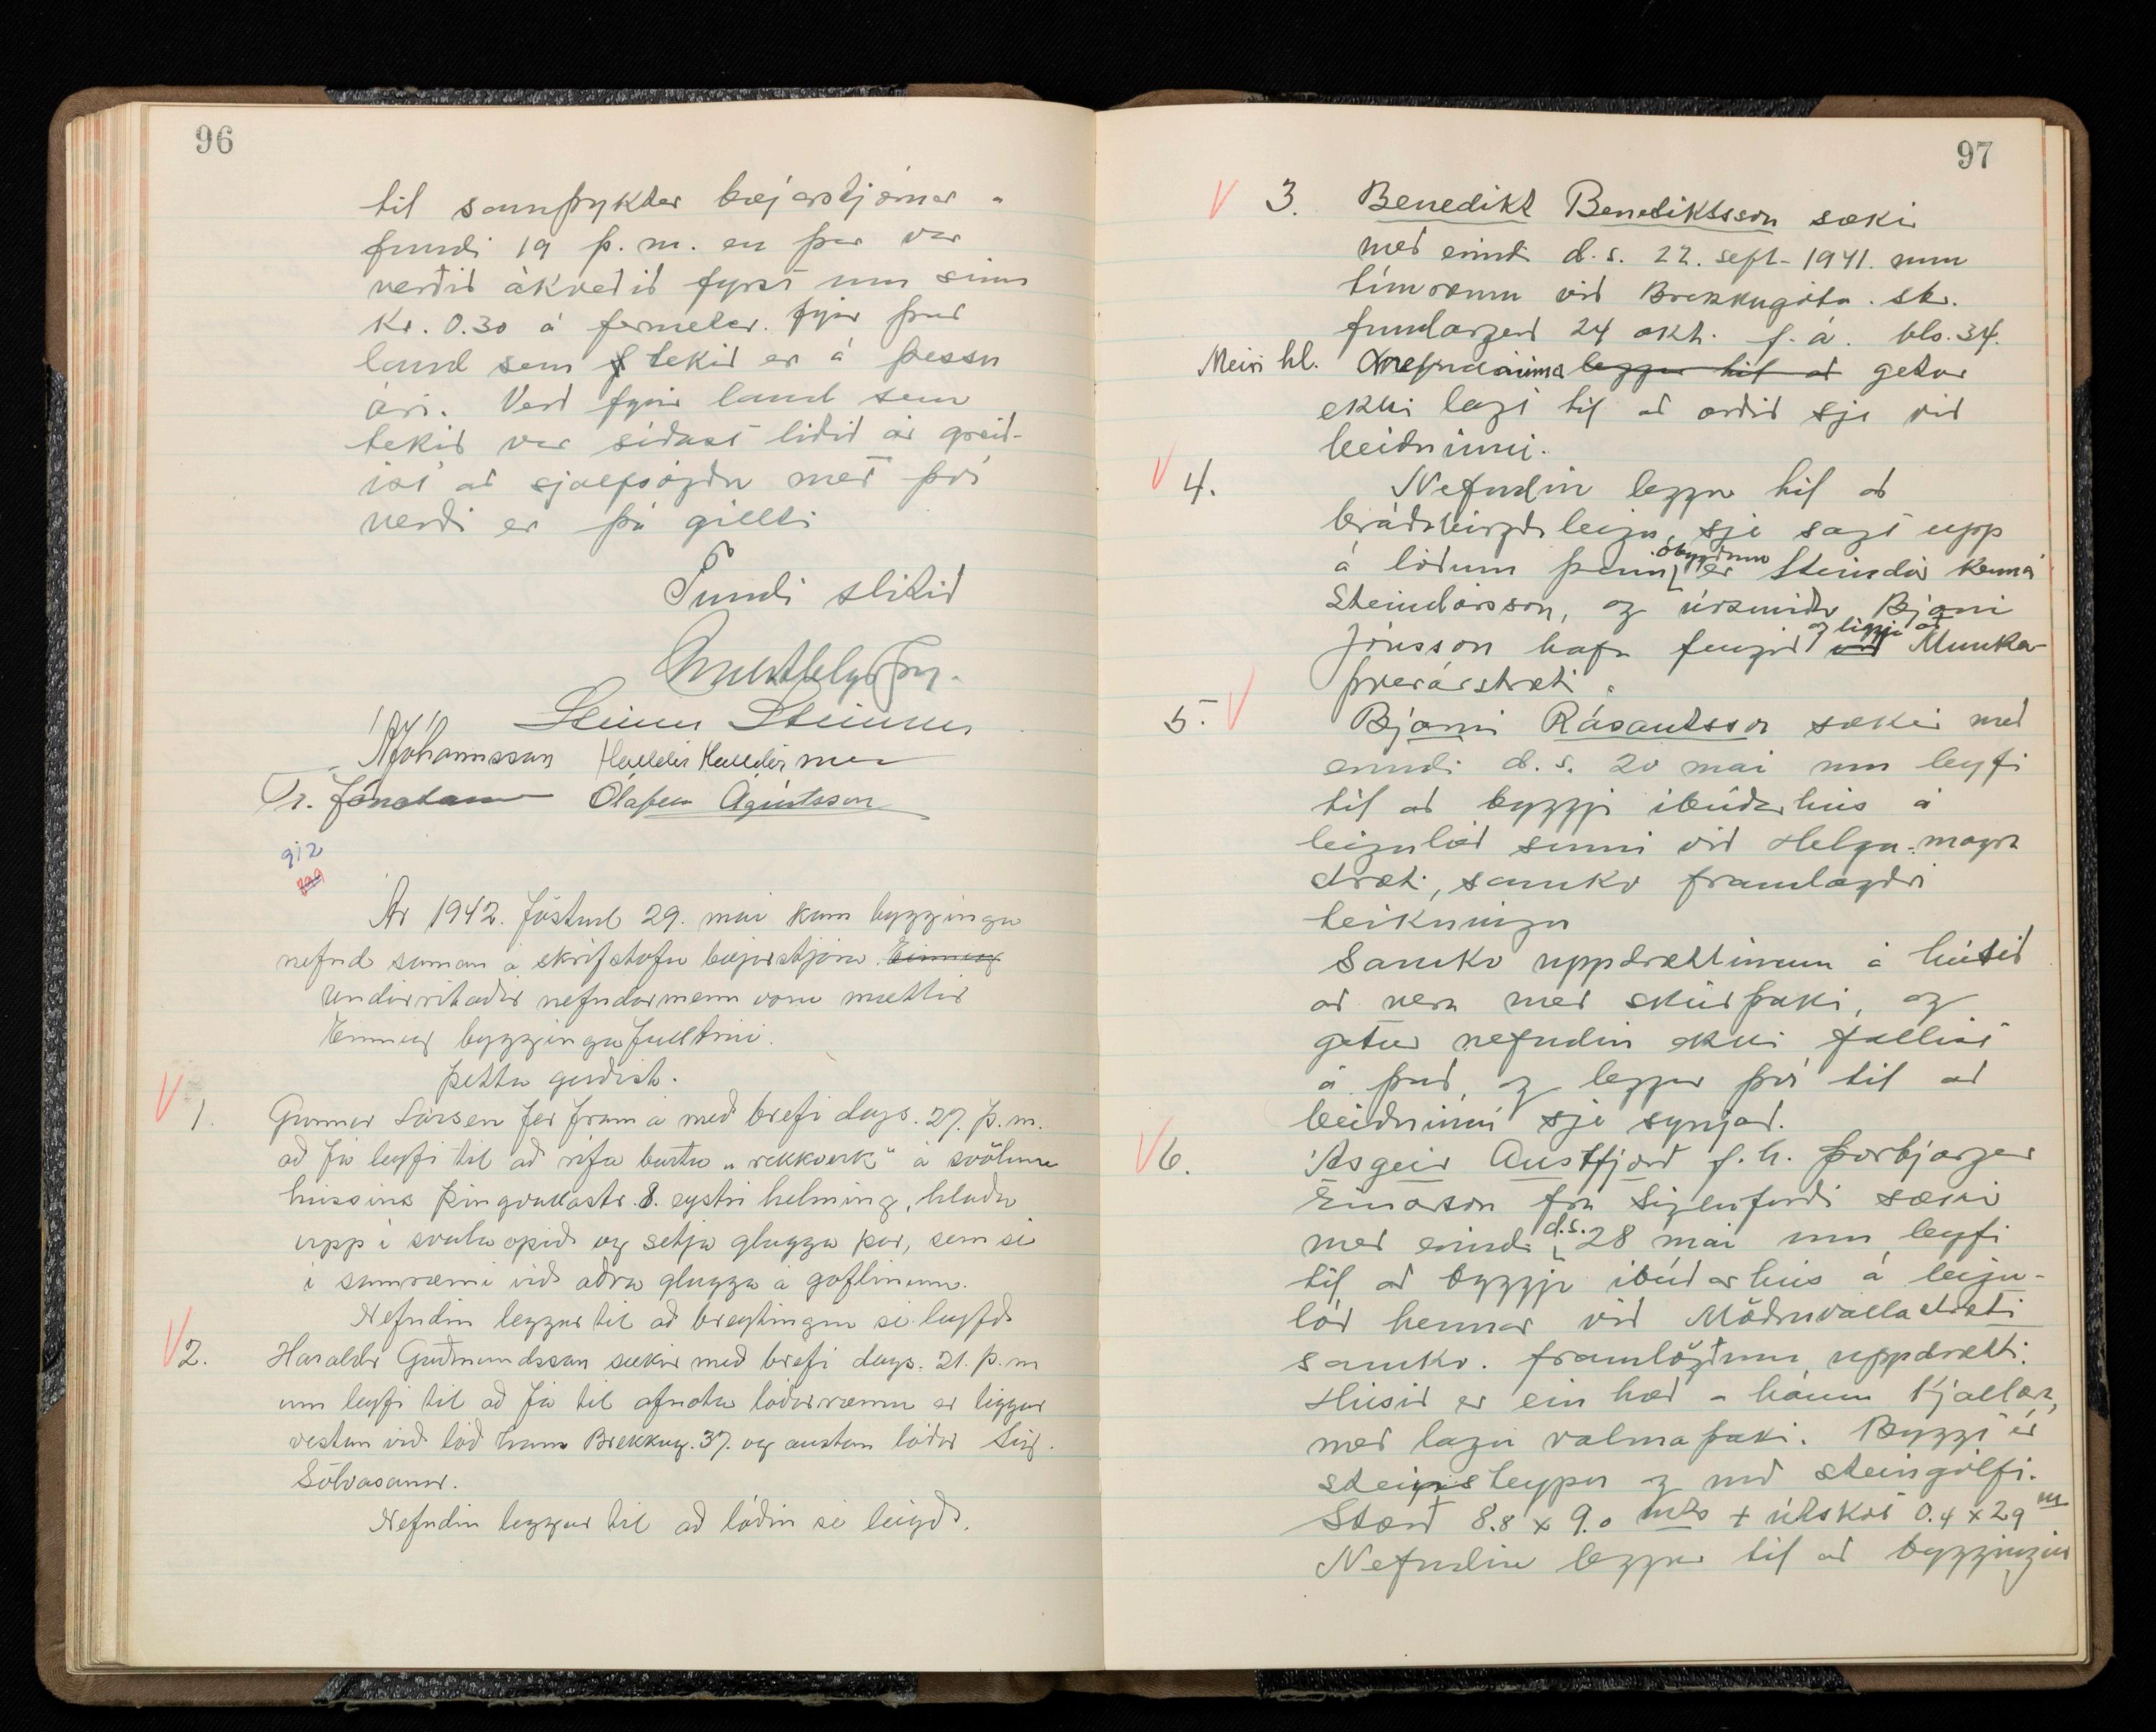 96
til samþyktar bæjarstjórnar -
fundi 19 þ.m. en þar var
verðið ákveðið fyrst um sinn
Kr. 0.30 á fermeter. fyrir það
land sem tekið er á þessu
ári. Verð fyrir land sem
tekið var síðast liðið ár greið-
ist að sjálfsögðu með því
verði er þá gillti
Fundi slitið
Steinn Steinsen
Jóhannsson Halldór Halldórsson
Tr. Jónatansson Ólafur Ágústsson
912
Ár 1942. föstud 29. mai kom bygginga
nefnd saman á skrifstofu bæjarstjóra. Einnig
Undirritaðir nefndarmenn voru mættir
Einnig byggingafulltrúi.
Þetta gerðist.
V 1. Gunnar Larsen fer fram á með brefi dags. 27. þ.m.
að fá leyfi til að rífa burtu „rekkverk" á svölum
hússins Þingvallastr. 8. eystri helming, hlaða
upp í svala opið og setja glugga þar, sem sé
í samræmi við aðra glugga á gaflinum.
Nefndin leggur til að breytingin sé leyfð
V 2. Haraldur Guðmundsson sækir með brefi dags. 21. þ.m
um leyfi til að fá til afnota lóðarræmu er liggur
vestan við lóð hans Brekkug. 37. og austan lóðar Sig.
Sölvasonar.
Nefndin leggur til að lóðin sé leigð.
97
V 3. Benedikt Benediktsson sækir
með erindi d.s. 22. sept. 1941. um
túnræmu við Brekkugötu. sbr.
fundargerð 24 okt. f.á. bls. 34.
Meiri hl. nefndarinnar leggur til að getur
ekki lagt til að orðið sje við
beiðninni.
V 4. Nefndin leggur til að
bráðabirgða leigu, sje sagt upp
á lóðum þeim óbygðum er Steindór kennari
Steindórsson, og úrsmiður Bjarni
Jónsson hafa fengið og liggja að við Munka-
þverárstræti.
5. V Bjarni Rósantsson sækir með
erindi d.s. 20 mai um leyfi
til að byggja íbúðarhús á
leigulóð sinni við Helga-magra
stræti, samkv framlagðri
teikningu
Samkv uppdrættinum á húsið
að vera með skúrþaki, og
getur nefndin ekki fallist
á það, og leggur því til að
beiðninni sje synjað.
V 6. Ásgeir Austfjörð f.h. Þorbjargar
Einarson frá Siglufirði sækir
með erindi d.s. 28 mai um leyfi
til að byggja íbúðarhús á leigu-
lóð hennar við Möðruvallastræti
samkv. framlögðum uppdrætti.
Húsið er ein hæð á háum kjallara,
með lágu valmaþaki. Byggt úr
steinsteypu og með steingólfi.
Stærð 8.8 x 9.0 mtr + útskot 0.4 x 2.9 m
Nefndin leggur til að byggingin